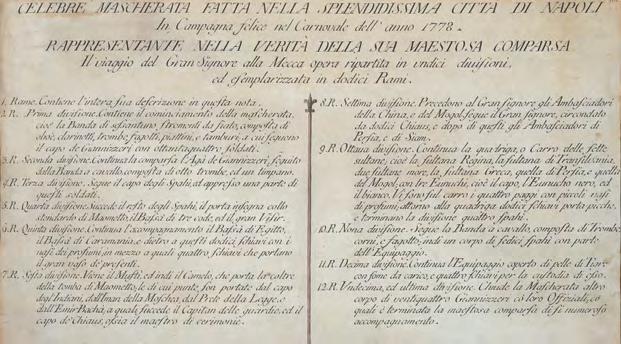 CELEBRE MASCHERATA FATTA NELLA SPLENDIDISSIMA CITTÀ DI NAPOLI
In Campagna felice nel Carnovale dell' anno 1778.
RAPPRESENTANTE NELLA VERITÀ DELLA SUA MAESTOSA COMPARSA
Il viaggio del Gran Signore alla Mecca opera ripartita in undici divisioni,
ed esemplarizzata in dodici Rami.
1. Rame. Contiene l'intera sua descrizione in questa nota.
2. R. Prima divisione. Contiene il cominciamento della mascherata,
cioè la Banda di ossantuno, stromenti da fiato, composta di
oboe, clarinetti, trombe, fagotti, piattini, e tamburi, a cui sequono
il capo de Giannizzeri con ottantaquattro soldati.
3. R. Seconda divisione. Continua la comparsa l'Agà de Giannizzeri, seguito
dalla Banda a cavallo, composta di otto trombe, ed un timpano.
4. R. Terza divisione. Segue il capo degli Spahi, ed appresso una parte di
questi soldati.
5. R. Quarta divisione. Succede il resto degli Spahi, il porta insegna collo
stendardo di Maometto, il Bassa di tre code, ed il gran Visir.
6. R. Quinta divisione. Continua l'accompagnamento il Bassa di Egitto,
il Bassa di Caramania, e dietro a questi dodici schiavi con i
vasi de profumi in mezzo a quali quattro schiavi che portano
il gran vaso de presenti.
7. R. Sesta divisione. Viene il Mufti, ed indi il Camelo, che porta la coltre
della tomba di Maometto, le di cui punte son portate dal capo
degl'Indiani, dall'Iman della Moschea, dal Prete della Legge, e
dall'Emir Bachà, a quali succede il Capitan delle guardie, ed il
capo de' Chiaus, ossia il maestro di cerimonie.
8. R. Settima divisione. Precedono al Gran signore gli Ambasciadori
della China, e del Mogol, segue il Gran signore, circondato
da dodici Chiaus, e dopo di questi gli Ambasciadori di
Persia, e di Siam.
9. R. Ottava divisione. Continua la quadriga, o Carro delle sette
sultane, cioè, la sultana Regina, la sultana di Transilvania,
due sultane more, la sultana Greca, quella di Persia, e quella
del Mogol, con tre Eunuchi, cioè il capo, l'Eunucho nero, ed
il bianco. Vi sono sul carro i quattro paggi con piccoli vasi
di profumi, attorno alla quadriga dodici schiavi porta picche,
e terminano la divisione quattro spahi.
10. R. Nona divisione. Segue la Banda a cavallo, composta di Trombe,
corni, e fagotto, indi un corpo di sedici spahi con parte
dell'Equipaggio.
11. R. Decima divisione. Continua l'Equipaggio coperto di pelle di Tigre
con some da carica, e quattro schiavi per la custodia di esso.
12. R. Undecima, ed ultima divisione. Chiude la Mascherata altro
corpo di ventiquattro Giannizzeri co loro Offiziali, co
quali è terminata la maestosa comparsa di si numeroso
accompagnamento.